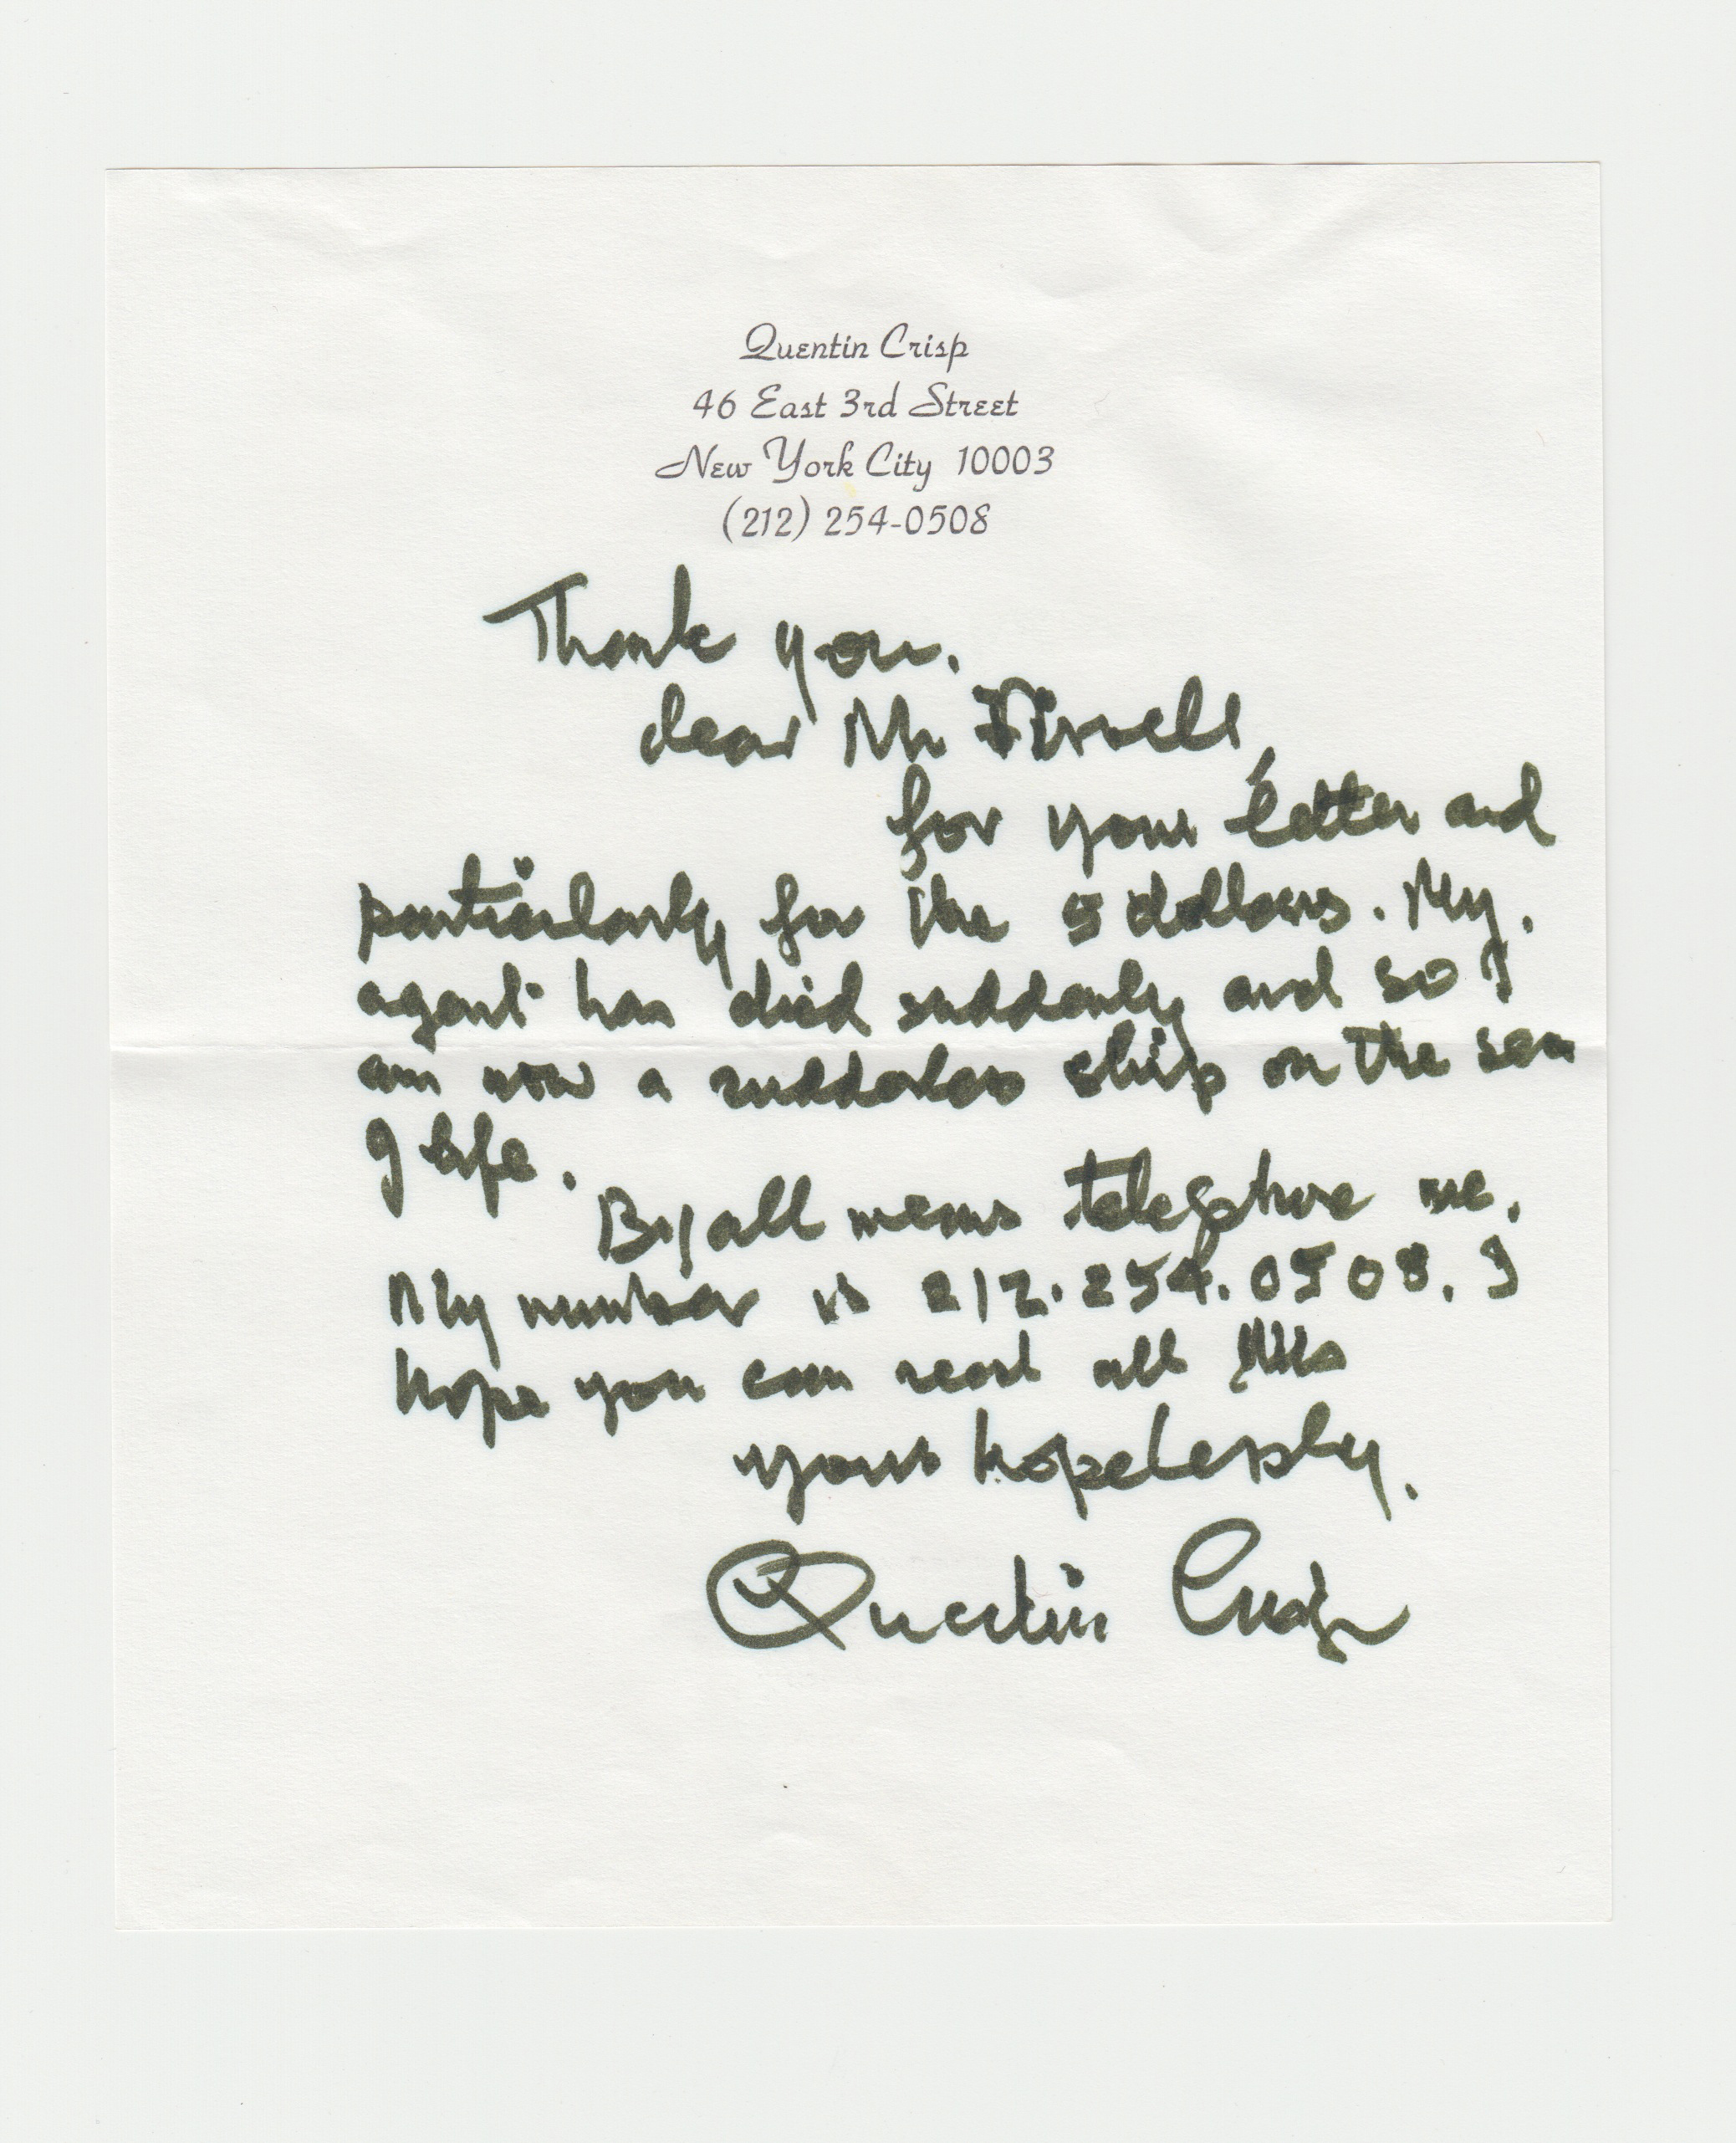 Quentin Crisp
46 East 3rd Street
New York City 10003
(212) 254-0508
Thank you.
dear Mr Firrell,
for your letter and
particularly for the 5 dollars. My.
agent has died suddenly and so I
am now a rudderless ship on the sea
of life.
By all means telephone me.
My number is 212.254.0508. I
hope you can read all this
yours hopelessly.
Quentin Crisp